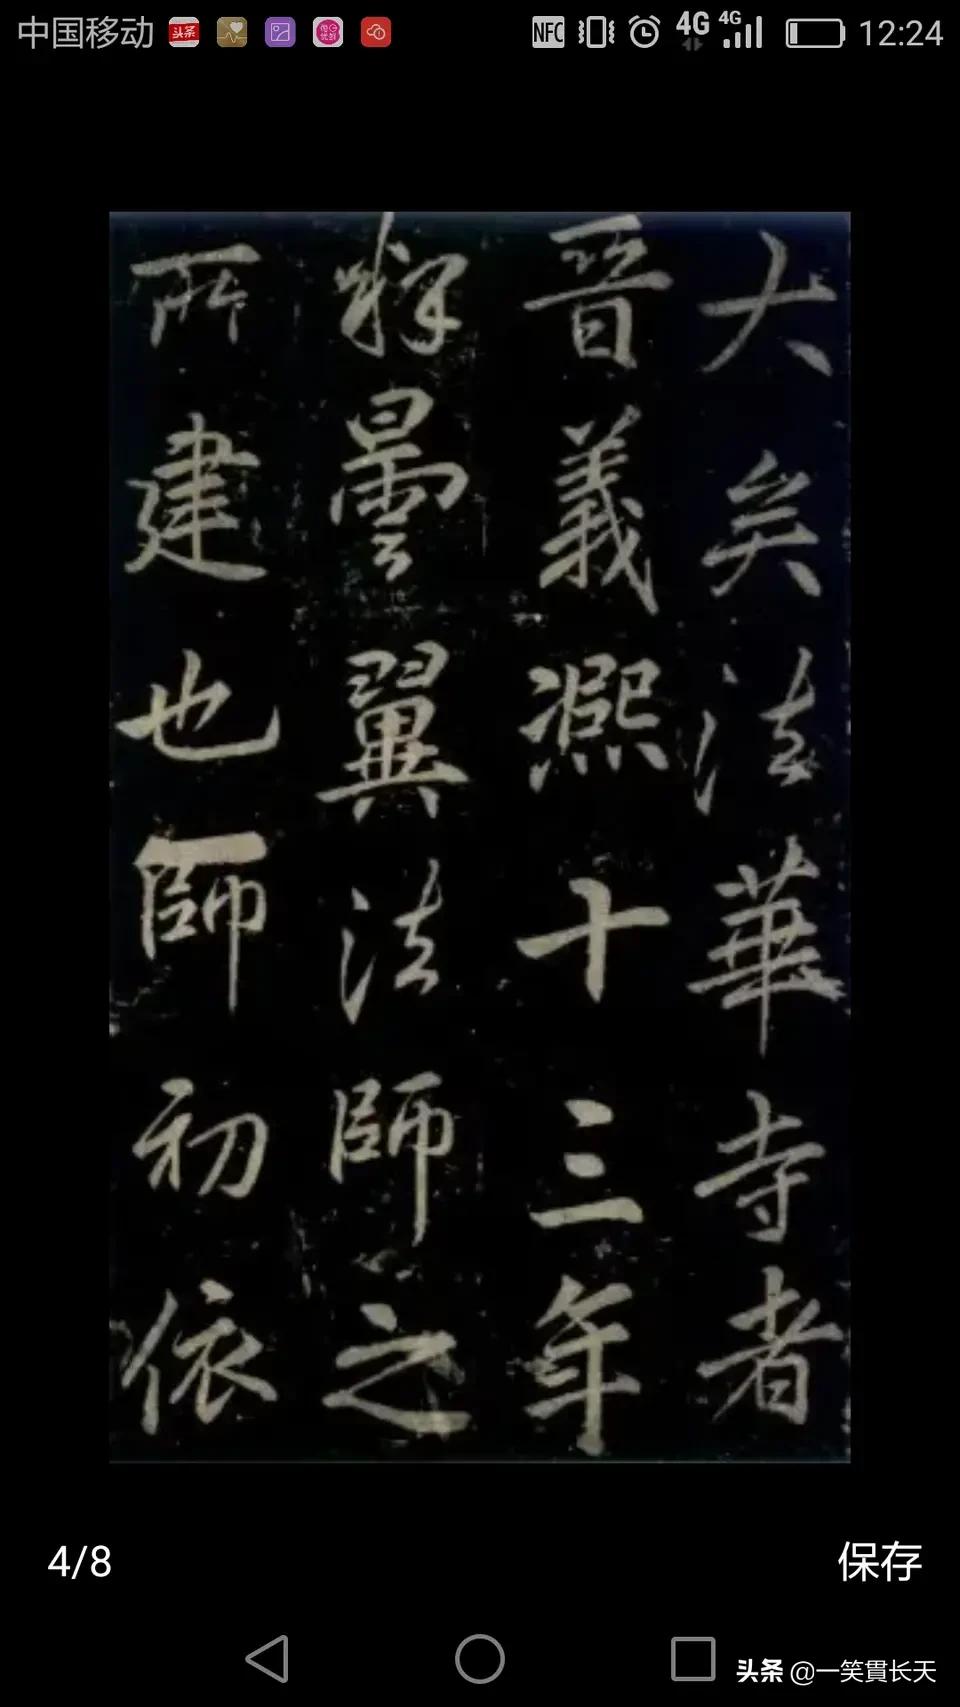 中国移动 头条 NFC 4G 4G 12:24
大矣法華寺者
晋義熈十三年
釋曇翼法師之
所建也師初依
4/8 保存
头条 @一笑貫长天